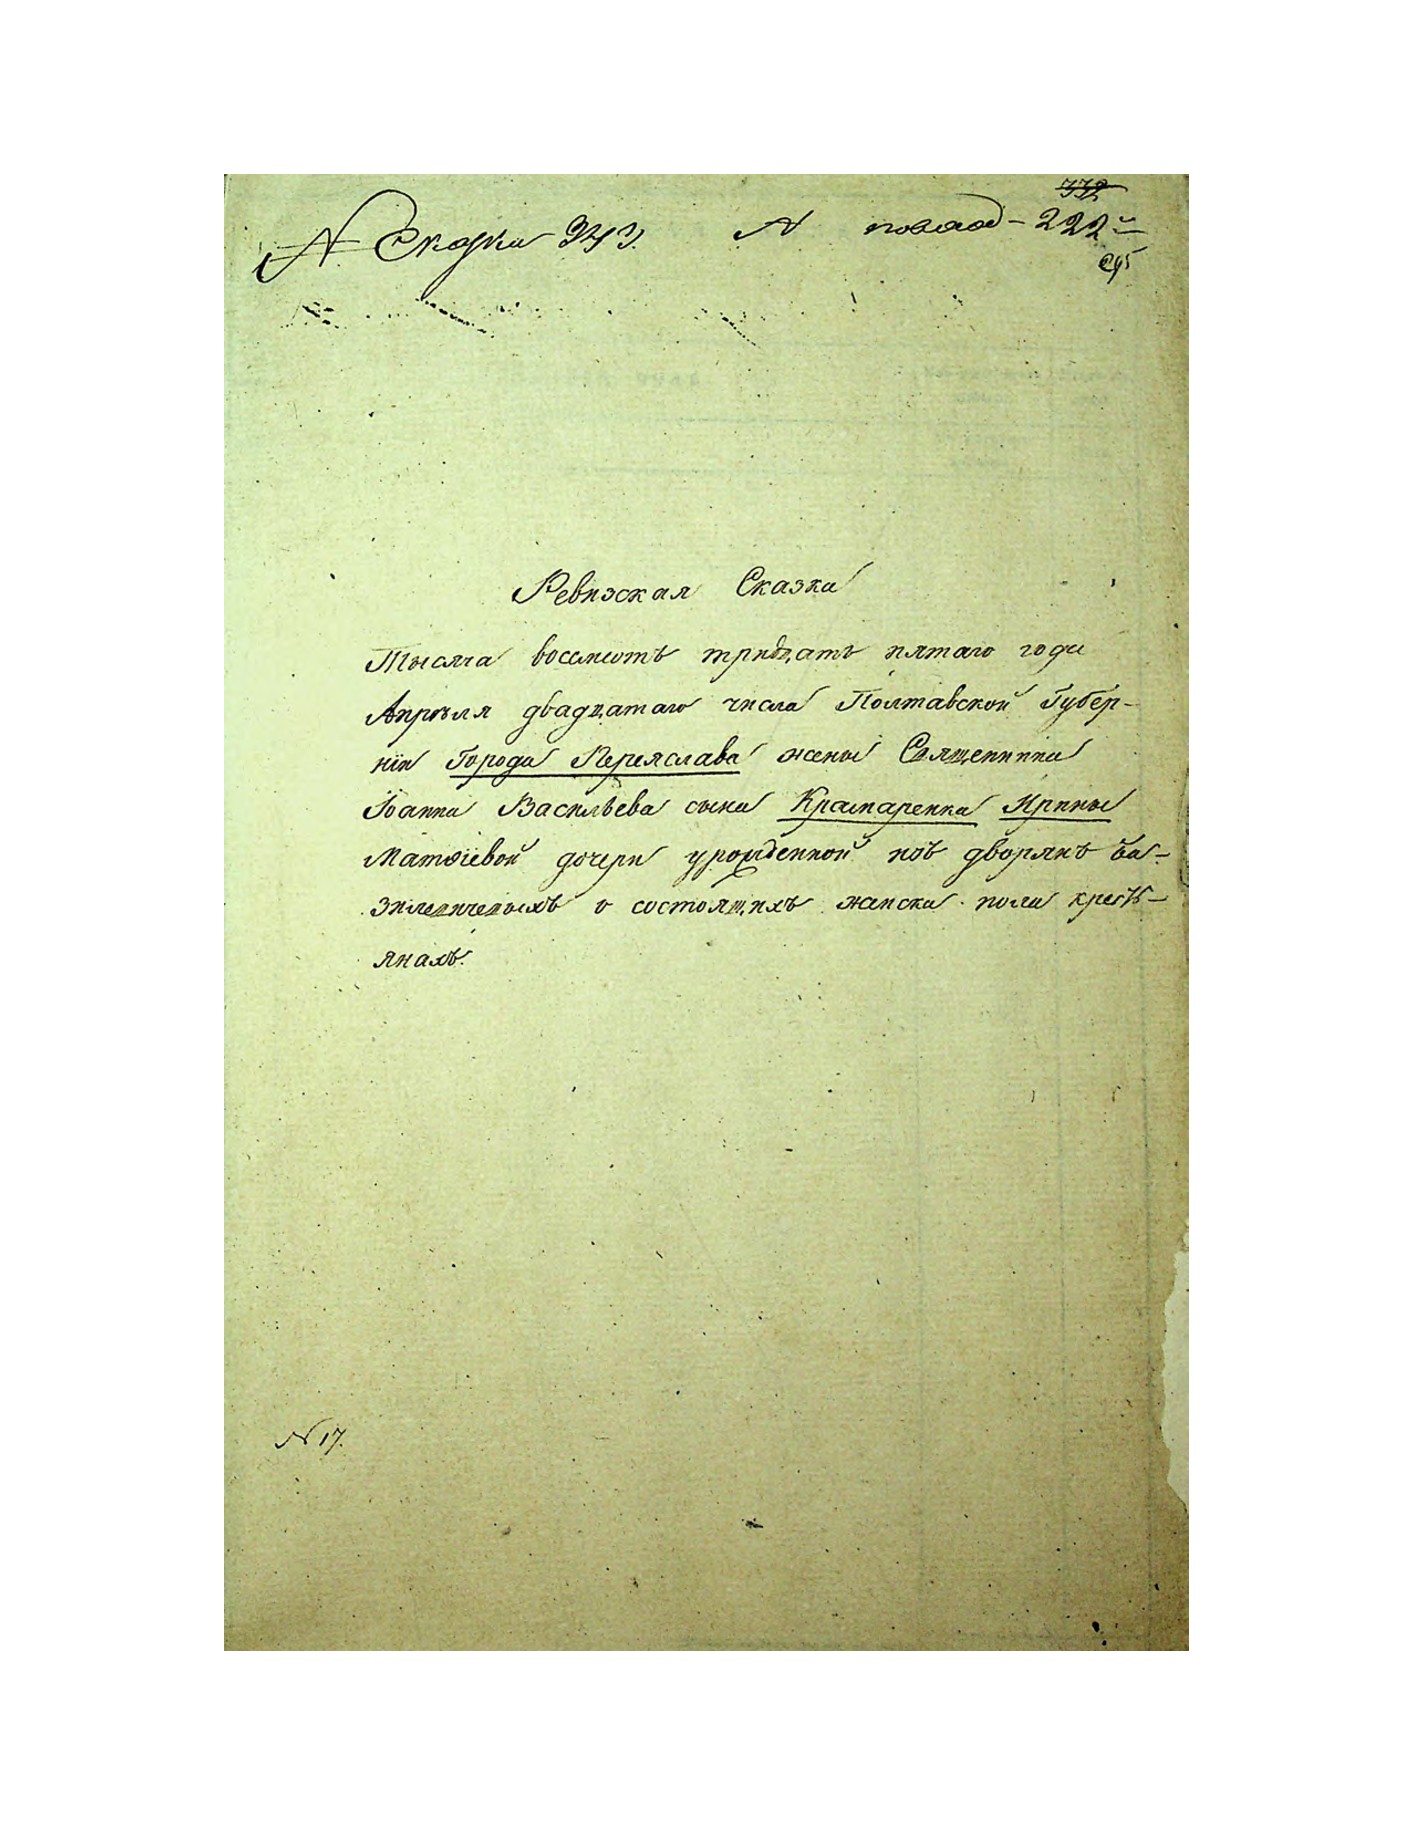 № Сказки 343. № по вход - 222й
332
Ревизская Сказка
Тысяча восемсотъ тридцать пятаго года
Апреля двадцатаго числа Полтавской Губер-
нiи Города Переяслава жены Священника
Iоанна Васильева сына Крамаренка Ирины
Матѳiевой дочери урожденной изъ дворянъ Ба-
зилевичевыхъ о состоящихъ женска пола кресть-
янахъ.
№ 17.